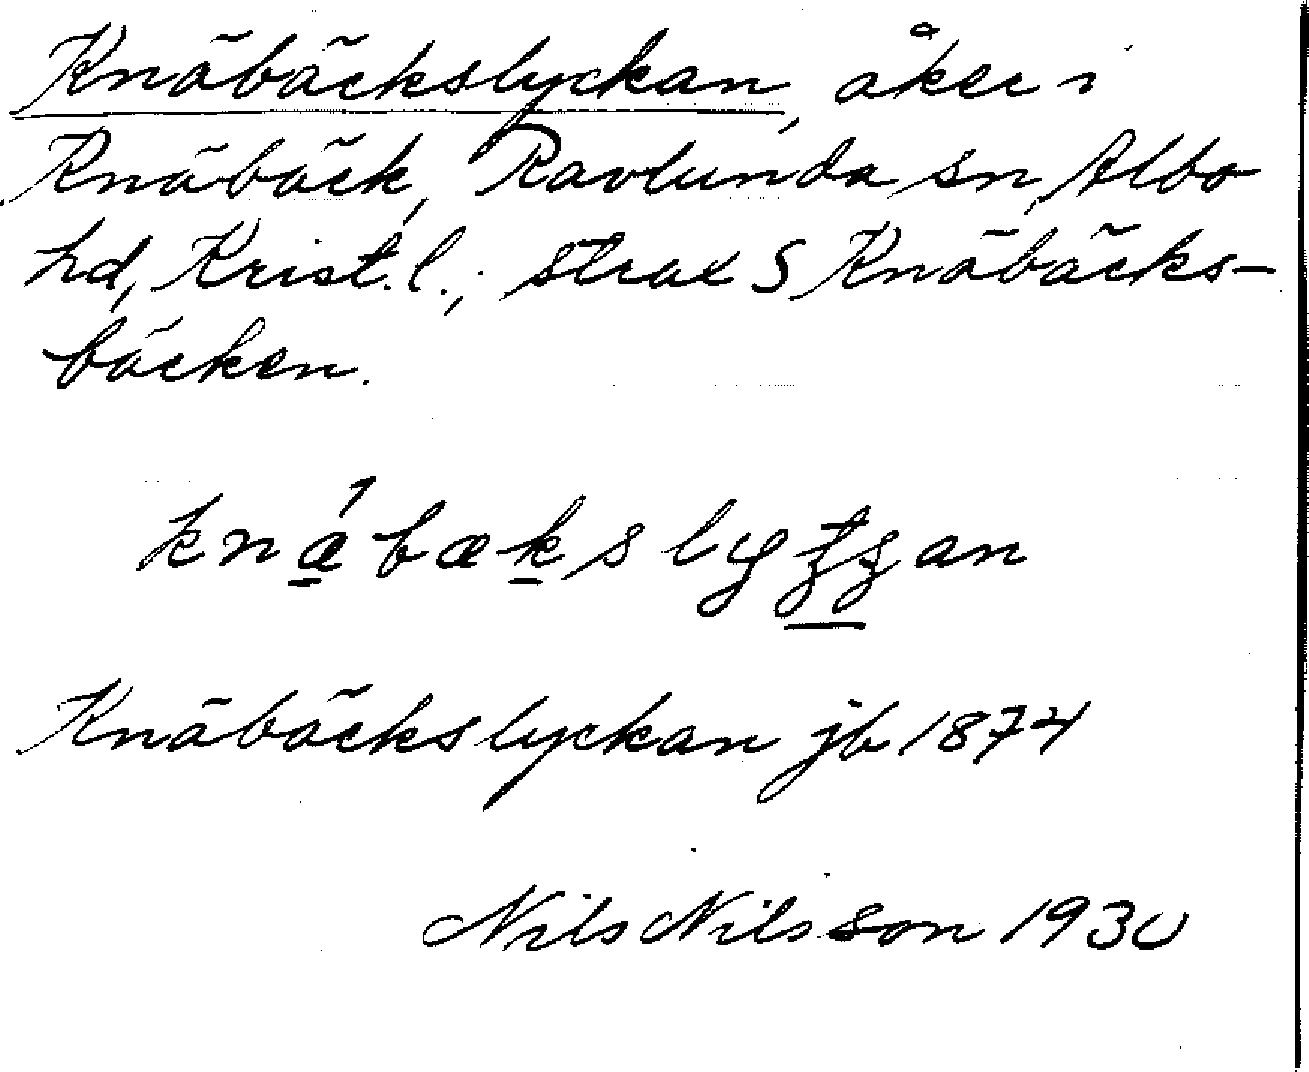 Knäbäckslyckan, åker i
Knäbäck, Ravlunda sn, Albo
hd, Krist.l.; strax S Knäbäcks-
bäcken.
Knäbäckslyckan jb 1874
Nils Nilsson 1930